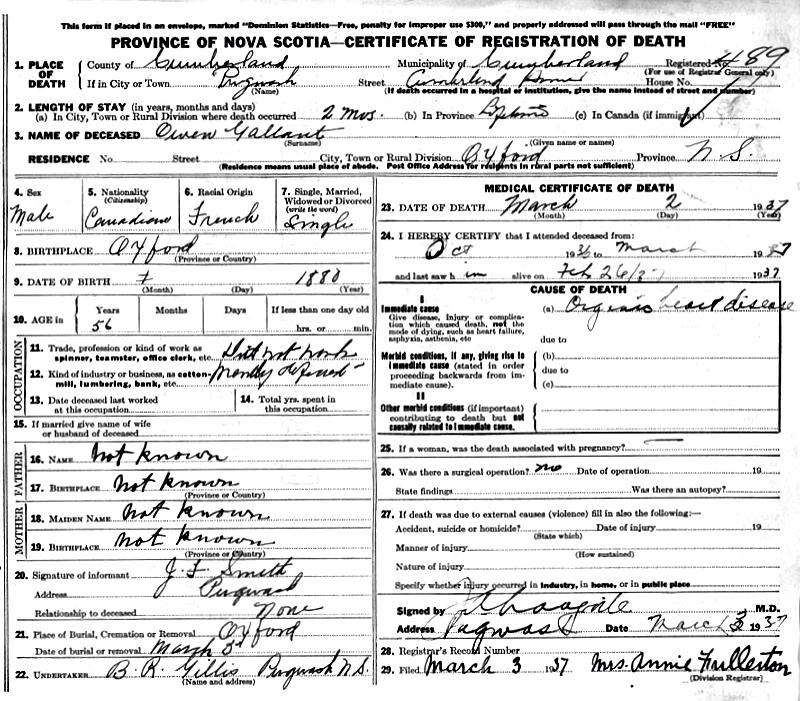 This form if placed in an envelope, marked "Dominion Statistics—Free, penalty for improper use $300," and properly addressed will pass through the mail "FREE"
PROVINCE OF NOVA SCOTIA—CERTIFICATE OF REGISTRATION OF DEATH
1. PLACE OF DEATH
County of Cumberland Municipality of Cumberland Registered No. 489
(For use of Registrar General only)
If in City or Town Pugwash Street Cumberland Home House No.
(Name) (If death occurred in a hospital or institution, give the name instead of street and number)
2. LENGTH OF STAY (in years, months and days)
(a) In City, Town or Rural Division where death occurred 2 mos. (b) In Province Lifetime (c) In Canada (if immigrant)
3. NAME OF DECEASED Owen Gallant
(Surname) (Given name or names)
RESIDENCE No. Street City, Town or Rural Division Oxford Province N.S.
(Residence means usual place of abode. Post Office Address for residents in rural parts not sufficient)
4. Sex
Male
5. Nationality
(Citizenship)
Canadian
6. Racial Origin
French
7. Single, Married, Widowed or Divorced
(write the word)
Single
8. BIRTHPLACE Oxford
(Province or Country)
9. DATE OF BIRTH 1880
(Month) (Day) (Year)
10. AGE in
Years Months Days If less than one day old
56 hrs. or min.
OCCUPATION
11. Trade, profession or kind of work as spinner, teamster, office clerk, etc. Did not work
12. Kind of industry or business, as cotton-mill, lumbering, bank, etc.
13. Date deceased last worked at this occupation
14. Total yrs. spent in this occupation
15. If married give name of wife or husband of deceased
FATHER
16. NAME Not known
17. BIRTHPLACE Not known
(Province or Country)
MOTHER
18. MAIDEN NAME Not known
19. BIRTHPLACE Not known
(Province or Country)
20. Signature of informant J. F. Smith
Address Pugwash
Relationship to deceased None
21. Place of Burial, Cremation or Removal Oxford
Date of burial or removal March 5th
22. UNDERTAKER B. R. Gillis Pugwash N.S.
(Name and address)
MEDICAL CERTIFICATE OF DEATH
23. DATE OF DEATH March 2 1937
(Month) (Day) (Year)
24. I HEREBY CERTIFY that I attended deceased from:
Oct 1936 to March 1937
and last saw h im alive on Feb 26/37 1937
CAUSE OF DEATH
I
Immediate cause
Give disease, injury or complication which caused death, not the mode of dying, such as heart failure, asphyxia, asthenia, etc
(a) Organic heart disease
due to
Morbid conditions, if any, giving rise to immediate cause (stated in order proceeding backwards from immediate cause).
(b)
due to
(c)
II
Other morbid conditions (if important) contributing to death but not causally related to immediate cause.
25. If a woman, was the death associated with pregnancy?
26. Was there a surgical operation? no Date of operation 19
State findings Was there an autopsy?
27. If death was due to external causes (violence) fill in also the following:—
Accident, suicide or homicide? Date of injury 19
(State which)
Manner of injury
(How sustained)
Nature of injury
Specify whether injury occurred in industry, in home, or in public place
Signed by M.D.
Address Pugwash Date March 3 1937
28. Registrar's Record Number
29. Filed March 3 1937 Mrs. Annie Fullerton
(Division Registrar)